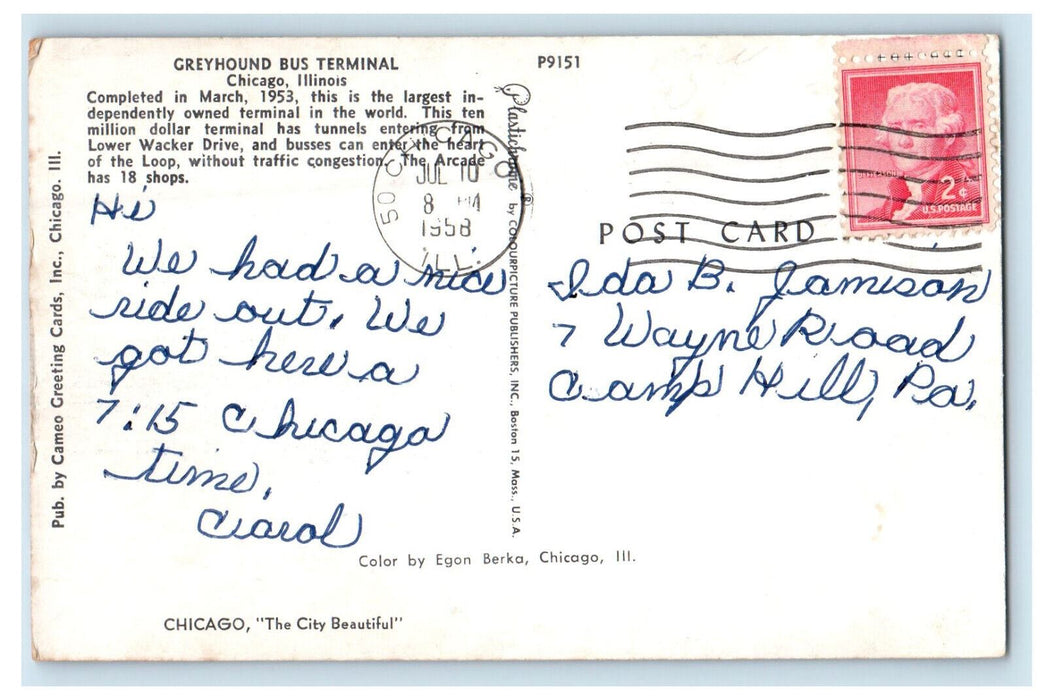 GREYHOUND BUS TERMINAL
Chicago, Illinois
Completed in March, 1953, this is the largest in-
dependently owned terminal in the world. This ten
million dollar terminal has tunnels entering from
Lower Wacker Drive, and busses can enter the heart
of the Loop, without traffic congestion. The Arcade
has 18 shops.
P9151
Pub. by Cameo Greeting Cards, Inc., Chicago. Ill.
Plastichrome ® by COLOURPICTURE PUBLISHERS, INC., Boston 15, Mass., U.S.A.
CHICAGO
JUL 10
8 PM
1958
ILL.
2¢
U.S. POSTAGE
POST CARD
Hi
We had a nice
ride out. We
got here a
7:15 Chicago
time.
Carol
Ida B. Jamison
7 Wayne Road
Camp Hill, Pa.
Color by Egon Berka, Chicago, Ill.
CHICAGO, "The City Beautiful"